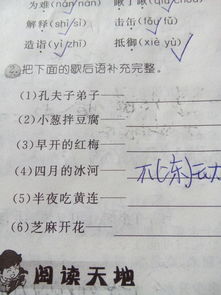 为难(nán/nàn)
解释(shì/sì) 击缶(fǒu fǔ)
造诣(yì/zhǐ) 抵御(xiè yù)
2.把下面的歇后语补充完整。
(1)孔夫子弟子——
(2)小葱拌豆腐——
(3)早开的红梅——
(4)四月的冰河——
(5)半夜吃黄连——
(6)芝麻开花——
阅读天地